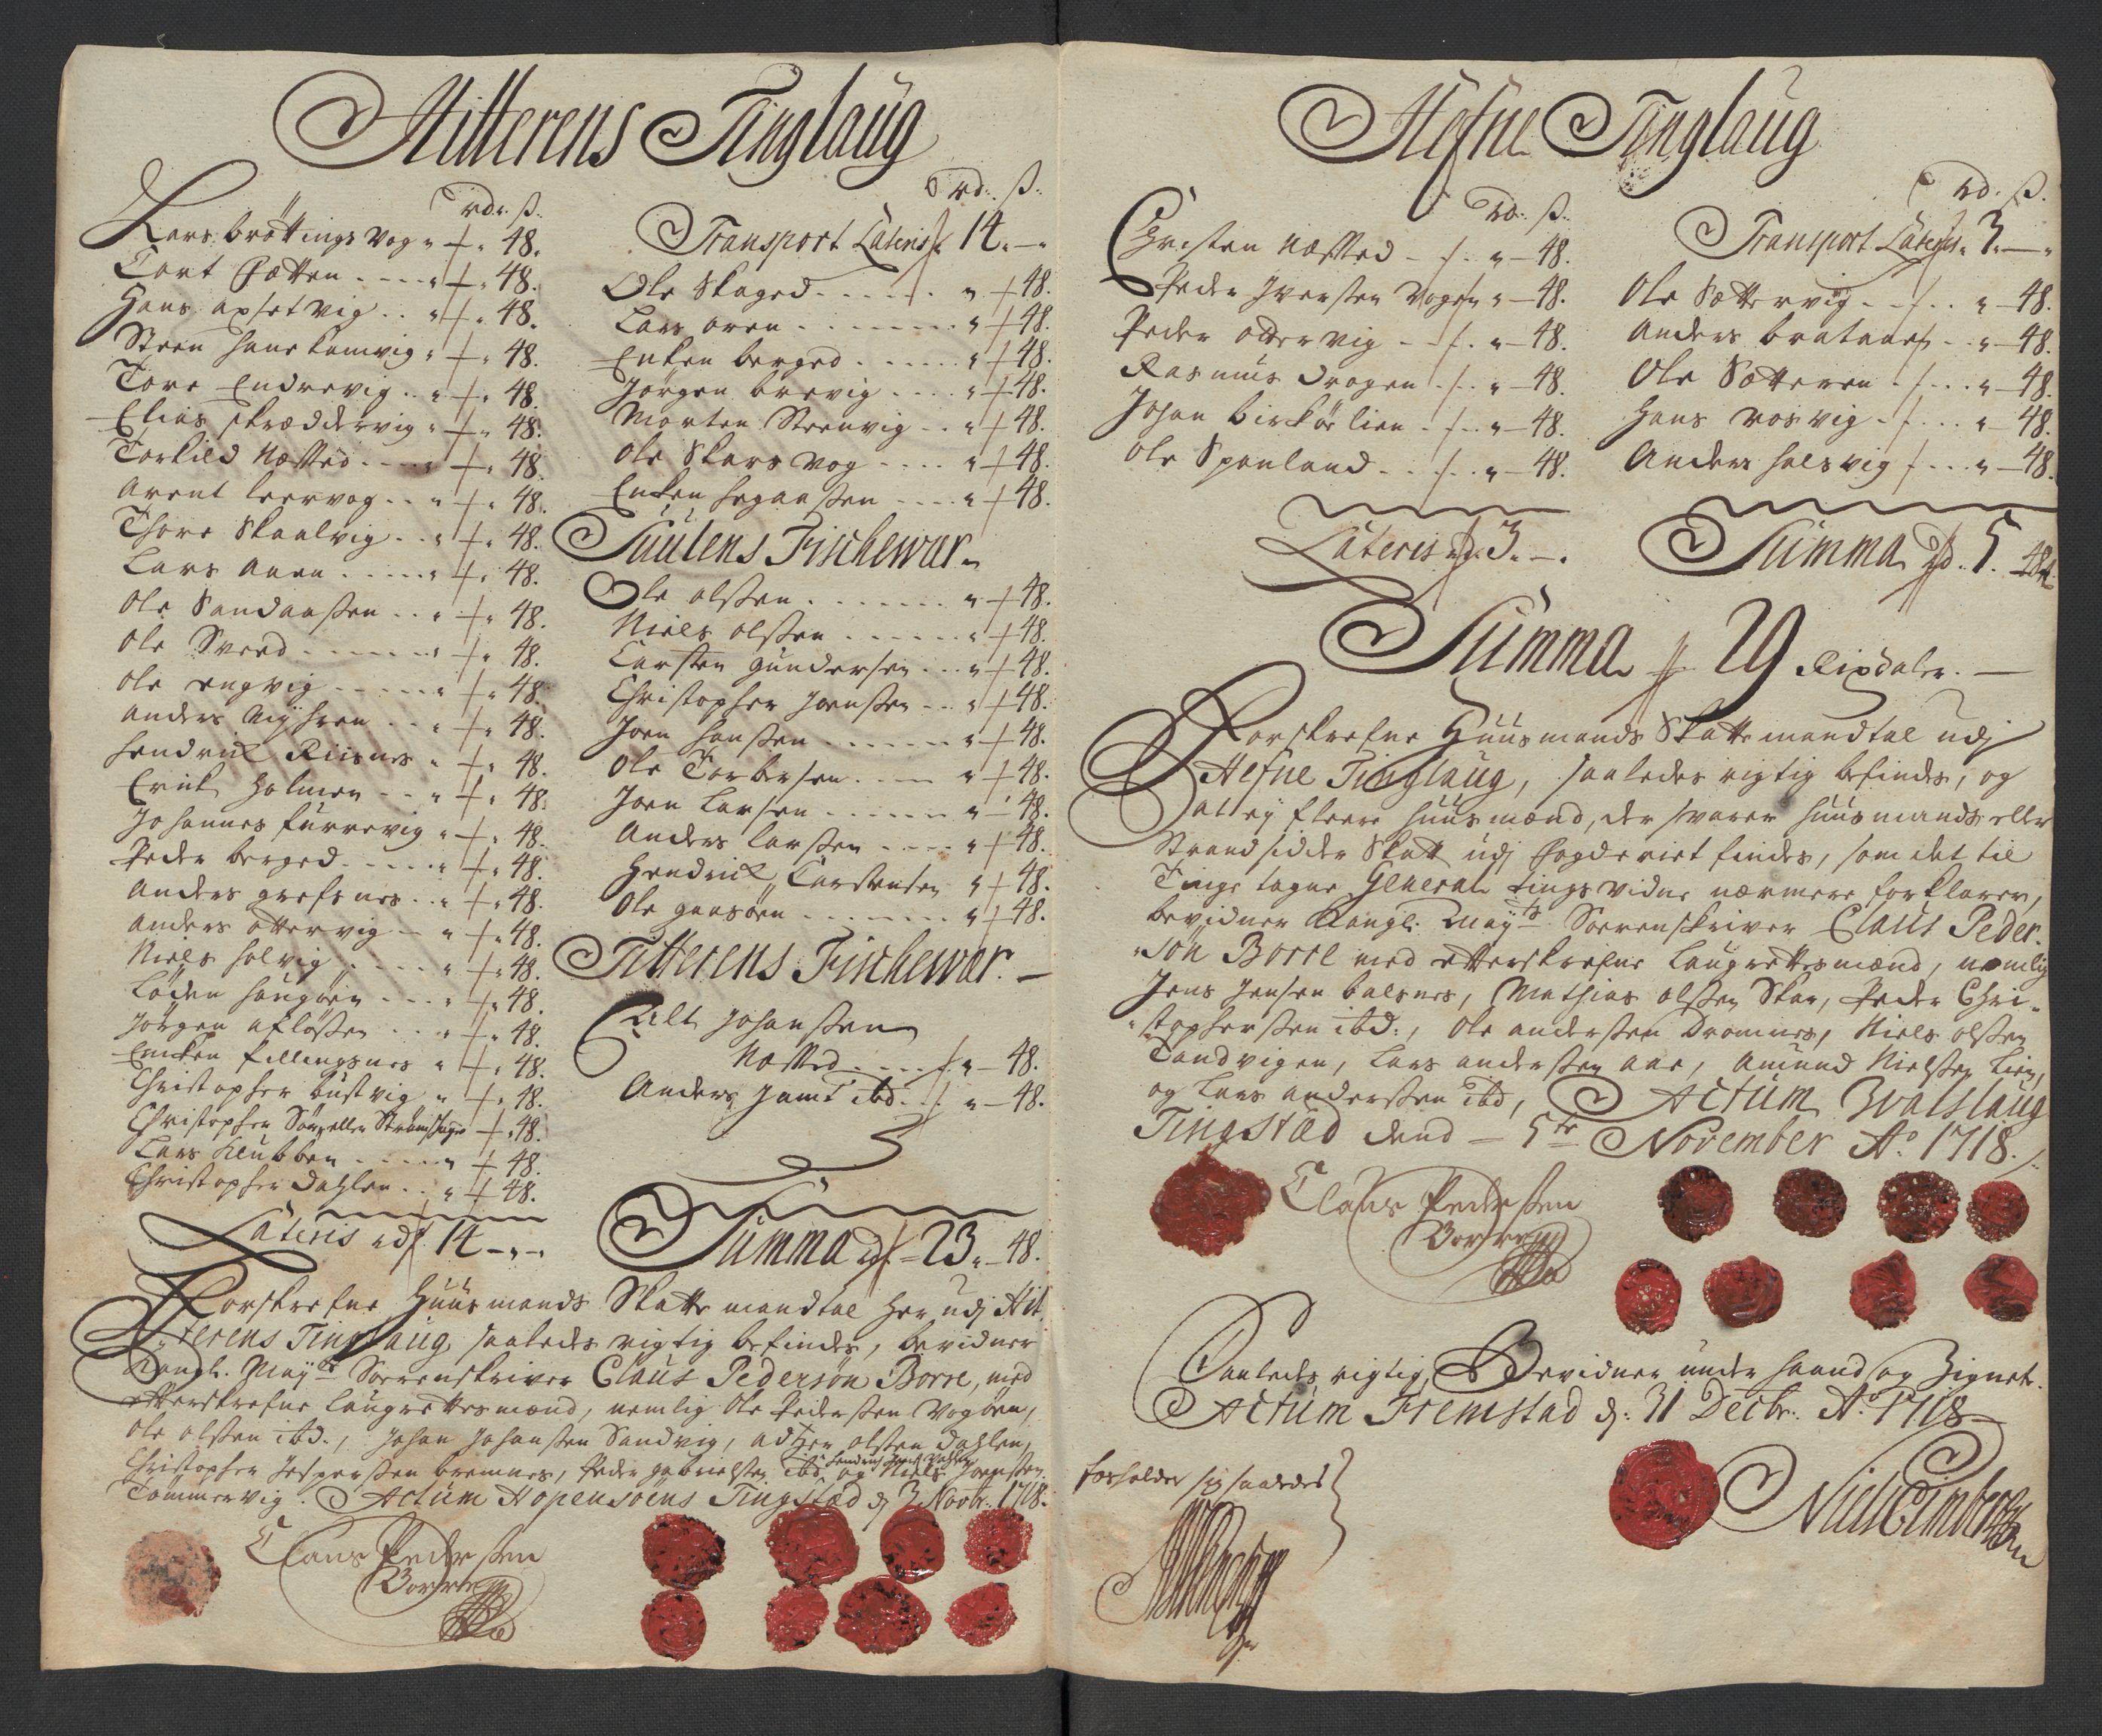 Hitterens Tinglaug
rdr. ß.
Lars bröttingsvog " 48.
Tort Sætten . . . . " 48.
Hans axsetvig . . " 48.
Steen hans kamvig " 48.
Tore Endrevig . . " 48.
Elias skræddervig " 48.
Torkild Næsset . . . " 48.
Arent leervog . . " 48.
Thore Skaalvig . . " 48.
Lars Aune . . . . . " 48.
Ole Sandaassen . . " 48.
Ole Sveed . . . . . " 48.
Ole engvig . . . . . " 48.
Anders Myhren . . " 48.
Hendrick Riisnes " 48.
Erich Holmen . . . " 48.
Johannes furrevig " 48.
Peder berged . . . . . " 48.
Anders grefsnes . . " 48.
Anders ottervig — " 48.
Niels holvig . . . . " 48.
Loden haugöen . . . " 48.
Jörgen aflössen . . . " 48.
Encken fillingsnes " 48.
Christopher bustvig " 48.
Christopher Sör eller Strömshagen 48.
Lars Klubben . . . . . " 48.
Christopher Dahlen . . " 48.
Lateris rdr 14 — " —
rd. ß.
Transport Lateris 14. — "
Ole Skaged . . . . . . " 48.
Lars oren . . . . . . . " 48.
Enken berged . . . . . . " 48.
Jörgen brevig . . . . " 48.
Morten Steenvig . . . " 48.
Ole Skarsvog . . . . " 48.
Enken hegaassen . . . . " 48.
Suulens Fischewær.
Ole olssen . . . . . . . . " 48.
Niels olssen . . . . . . " 48.
Carsten Gundersen . . . " 48.
Christopher Joenssen . . " 48.
Joen hanssen . . . . . . " 48.
Ole Torbersen . . . . " 48.
Joen Larsen . . . . . . " 48.
Anders larssen . . . . " 48.
Hendrick Carstensen " 48.
Ole gaasöen . . . . . . . " 48.
Titterens Fischewær. —
Oelt Johanssen
Næsset . . . . . " 48.
Anders Jamt ibd. . " — 48.
Summa rdr 23 " 48.
Forskrefne Huusmands Skatte mandtal her udj Hit-
terens Tinglaug saaledes rigtig befindes, bevidner
Kongl. Mayts Sorrenskriver Claus Pedersøn Borre, med
efterskrefne laugrettesmænd, nemlig Ole Pederssen Vogöen,
Ole olssen ibd., Johan Johanssen Sandvig, adtzer olssen Dahlen,
Christopher Jesperssen bremnes, Peder gabrielssen ibd, og Niels Joenssen
Tömmervig. Actum Hopensöens Tingstæd d 3 Novbr. 1718.
Claus Pederssen
Borre
Hefne Tinglaug
rdr. ß.
Christen Næssed — " — 48.
Peder Iverssen Vogen " — 48.
Peder ottervig — . " — 48.
Rasmus Drogen . . " — 48.
Johan birkörlien . . " — 48.
Ole Spanland . . . " — 48.
Lateris rdr. 3. — .
rd. ß.
Transport Lateris. 3. — "
Ole Sættervig . . . . " — 48.
Anders brataas . . . " — 48.
Ole Sætteren . . . . " — 48.
Hans rosvig . . . . . " — 48.
Anders halsvig . . . " — 48.
Summa rd. 5. 48.
Summa 29 Rixdaler. —
Forskrefne Huusmands Skatte mandtal udj
Hefne Tinglaug, saaledes rigtig befindes, og
at ey fleere huusmænd, der svarer huusmands eller
Strandsidder Skatt udj fogderiet findes, som det til
Tinge tagne General tingsvidne nærmere forklarer,
bevidner Kongl. Mayts Sorrenskriver Claus Peder-
søn Borre med efterskrefne Laugrettesmænd, nemlig
Jens Jensen balsnes, Mathias olssen Skar, Peder Chri-
stopherssen ibd:, Ole anderssen Dromnes, Niels olssen
Tandvigen, Lars anderssen aae, Amund Nielssen Lien,
og Lars anderssen ibd, Actum Walslaug
Tingstæd dend — 5te November Ao. 1718.
Claus Pederssen
Borre
Saaledes rigtig, Bevidner under haand og Zignete.
Actum Fremstad d: 31 Decbr. Ao 1718 —
forholder sig saaledes